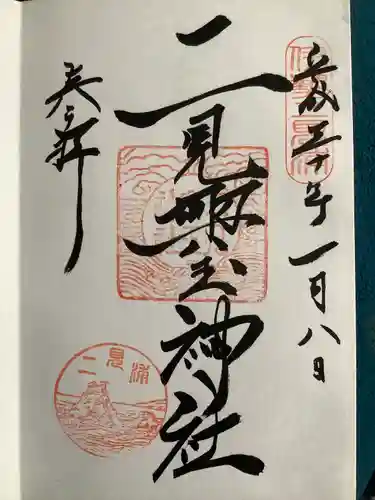 平成三十年一月八日
二見興玉神社
奉拝
二見浦